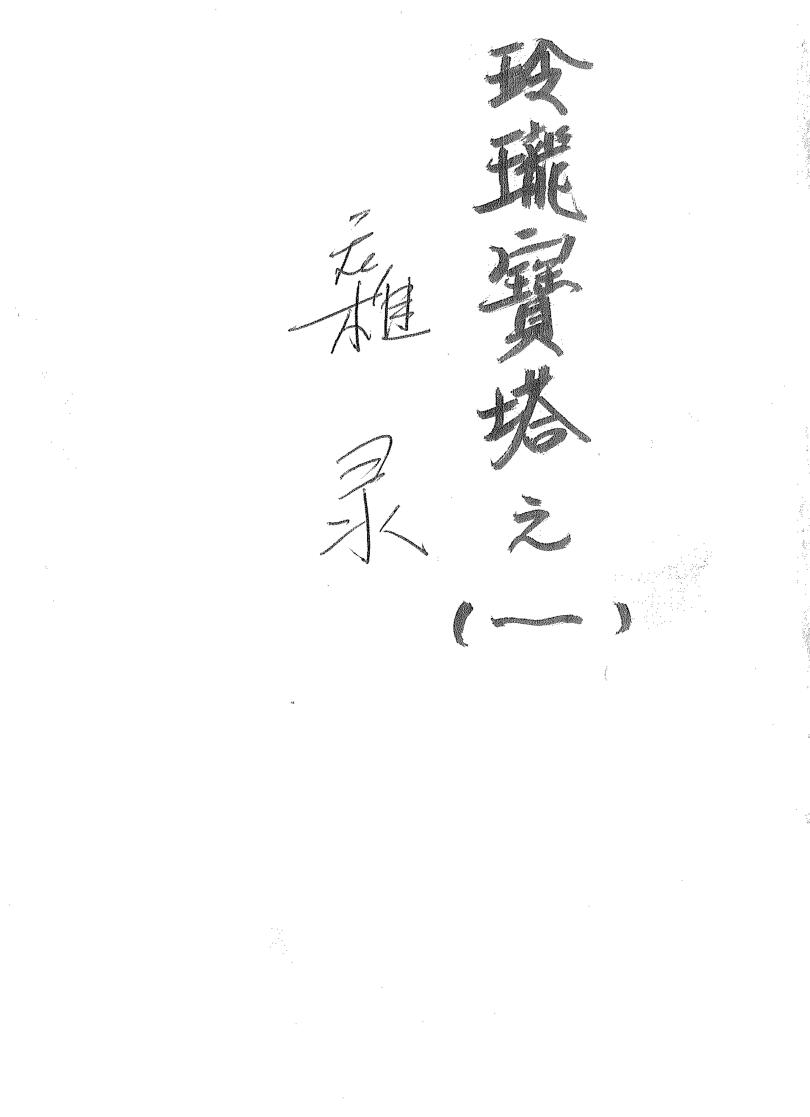 玲瓏寳塔之
(一)
雜录